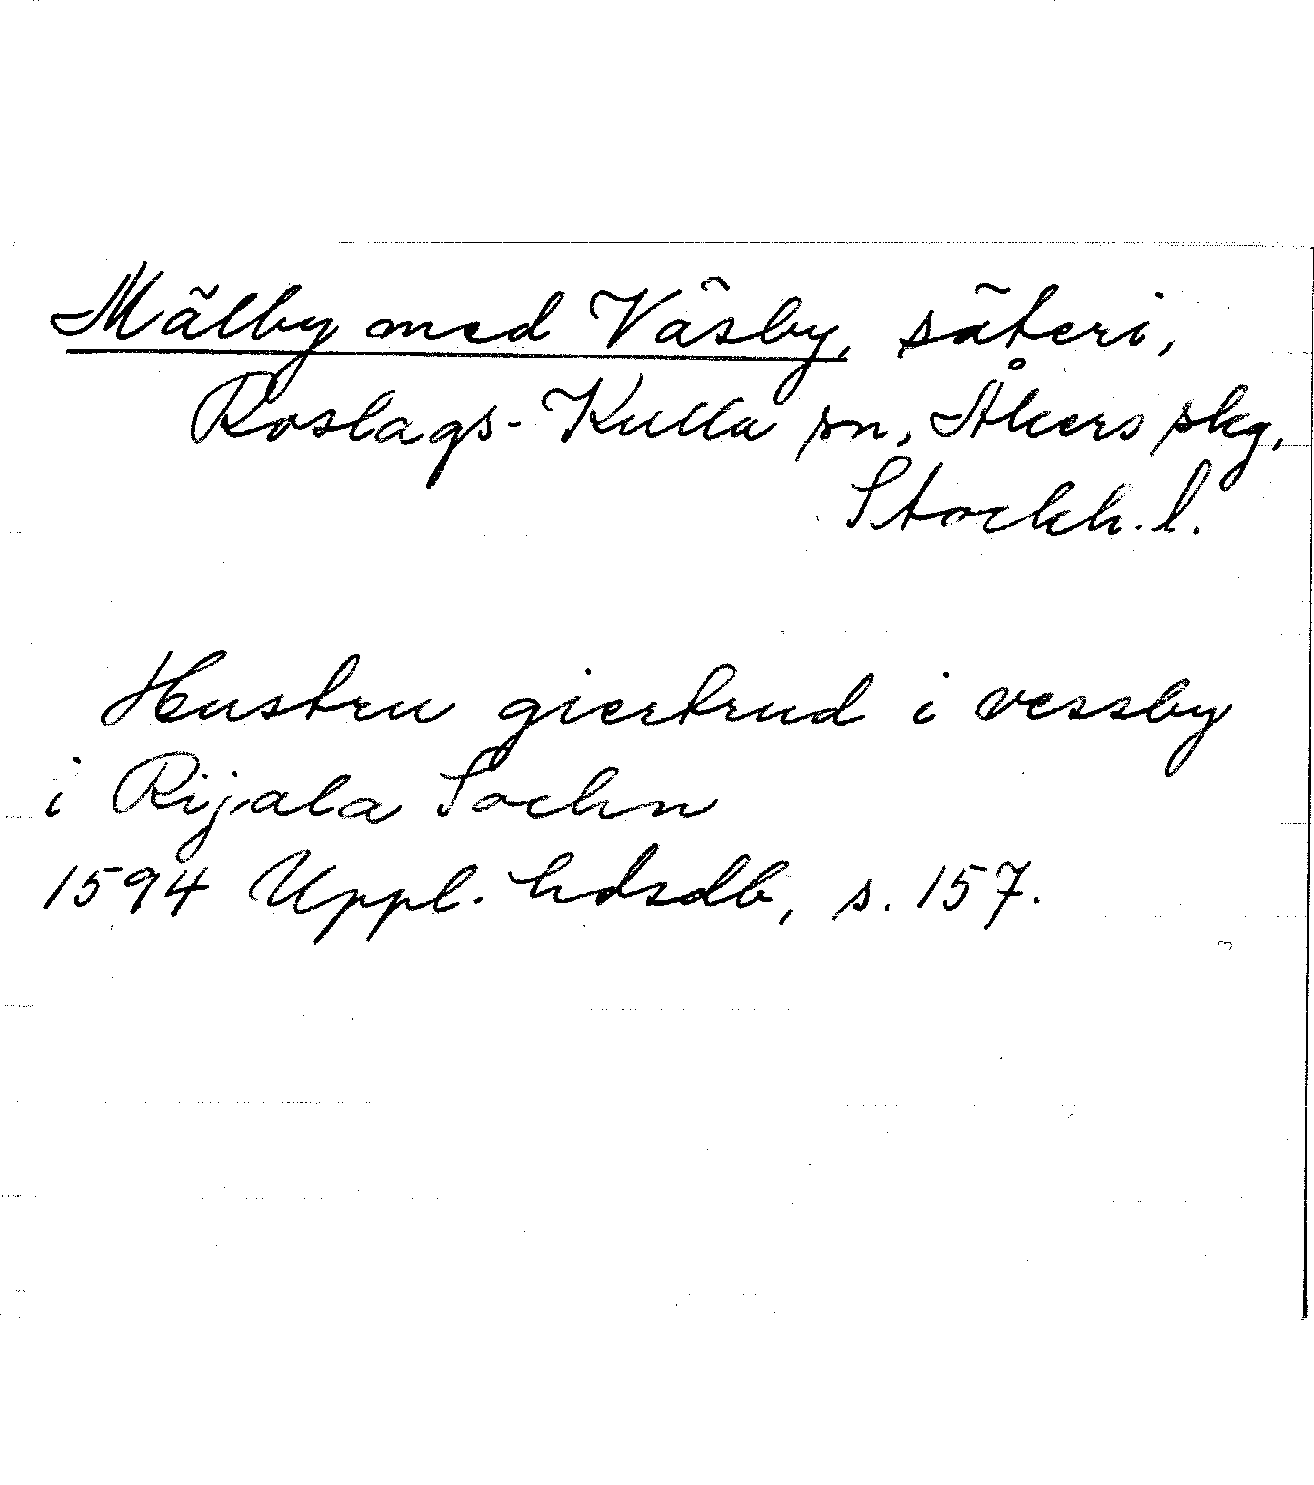 Mälby med Väsby, säteri,
Roslags-Kulla sn, Åkers skg,
Stockh. l.
Hustru giertrud i vessby
i Rijala Sochn
1594 Uppl. hdsdb, s. 157.